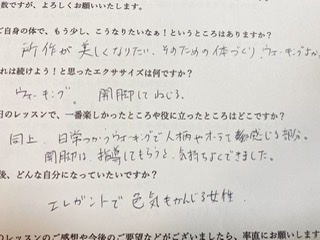 数ですが、よろしくお願いいたします。
ご自身の体で、もう少し、こうなりたいなぁ！というところはありますか？
所作が美しくなりたい、そのための体づくり、ウォーキング
れは続けよう！と思ったエクササイズは何ですか？
ウォーキング。 開脚してねじる。
日のレッスンで、一番楽しかったところや役に立ったところはどこですか？
同上、日常つかうウォーキングで人柄やオーラを感じる部分。
開脚は、指導してもらうと、気持ちよくできました。
後、どんな自分になっていたいですか？
エレガントで 色気もかんじる女性
のレッスンのご感想や今後のご要望などがございましたら、率直にお願いします